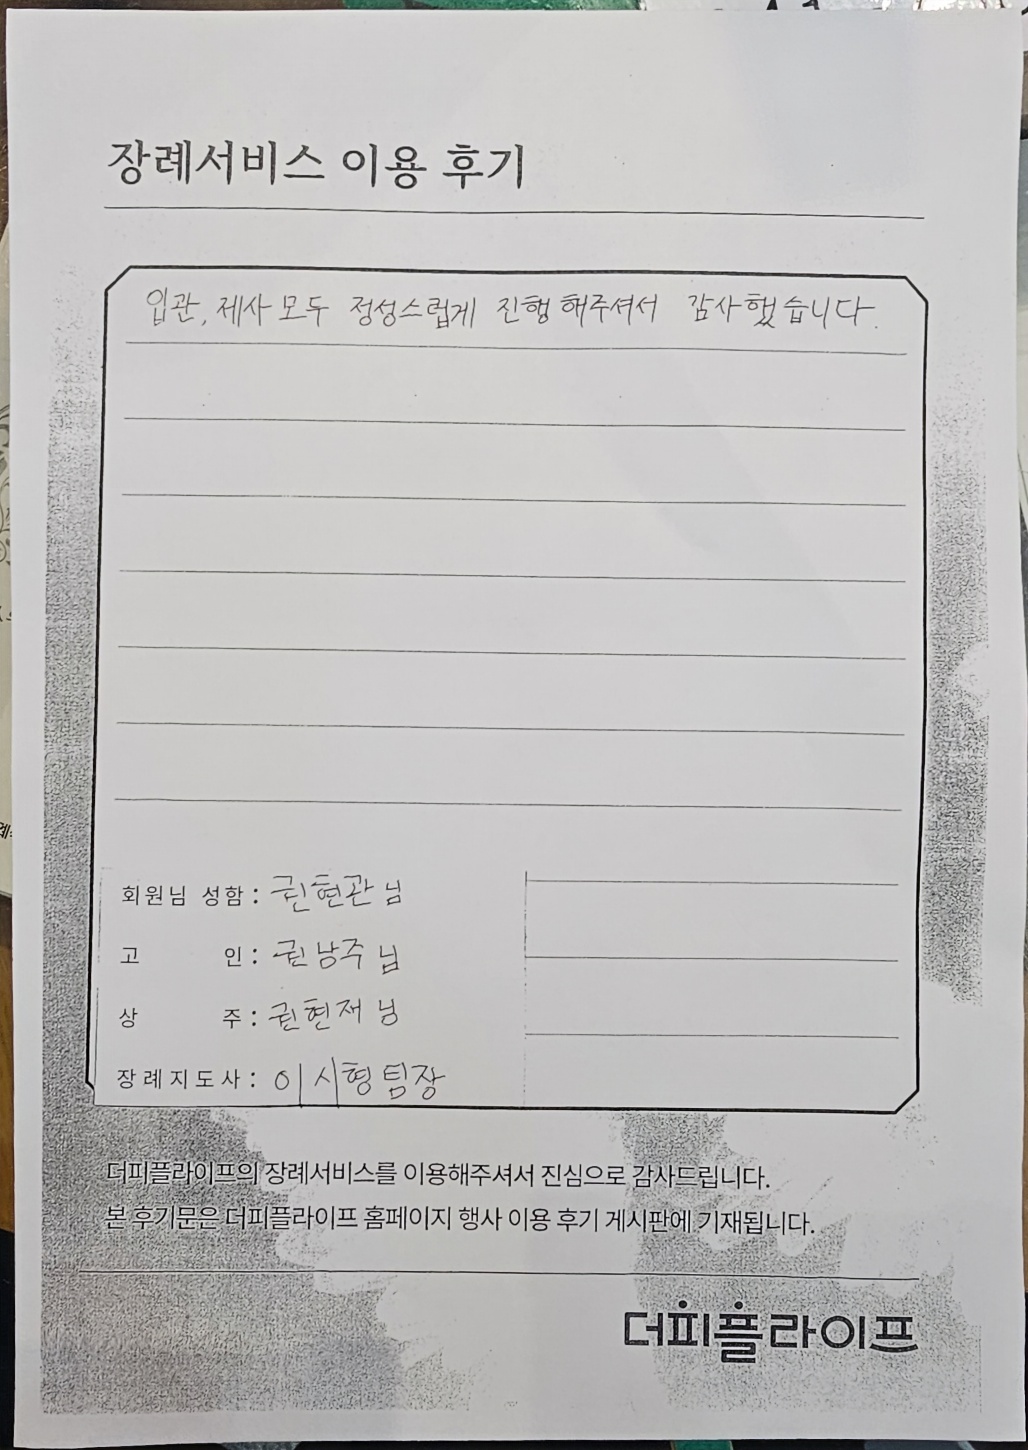 장례서비스 이용 후기
입관, 제사 모두 정성스럽게 진행 해주셔서 감사했습니다.
회원님 성함 : 권현관 님
고 인 : 권낭주 님
상 주 : 권현재 님
장례지도사 : 이시형팀장
더피플라이프의 장례서비스를 이용해주셔서 진심으로 감사드립니다.
본 후기문은 더피플라이프 홈페이지 행사 이용 후기 게시판에 기재됩니다.
더피플라이프